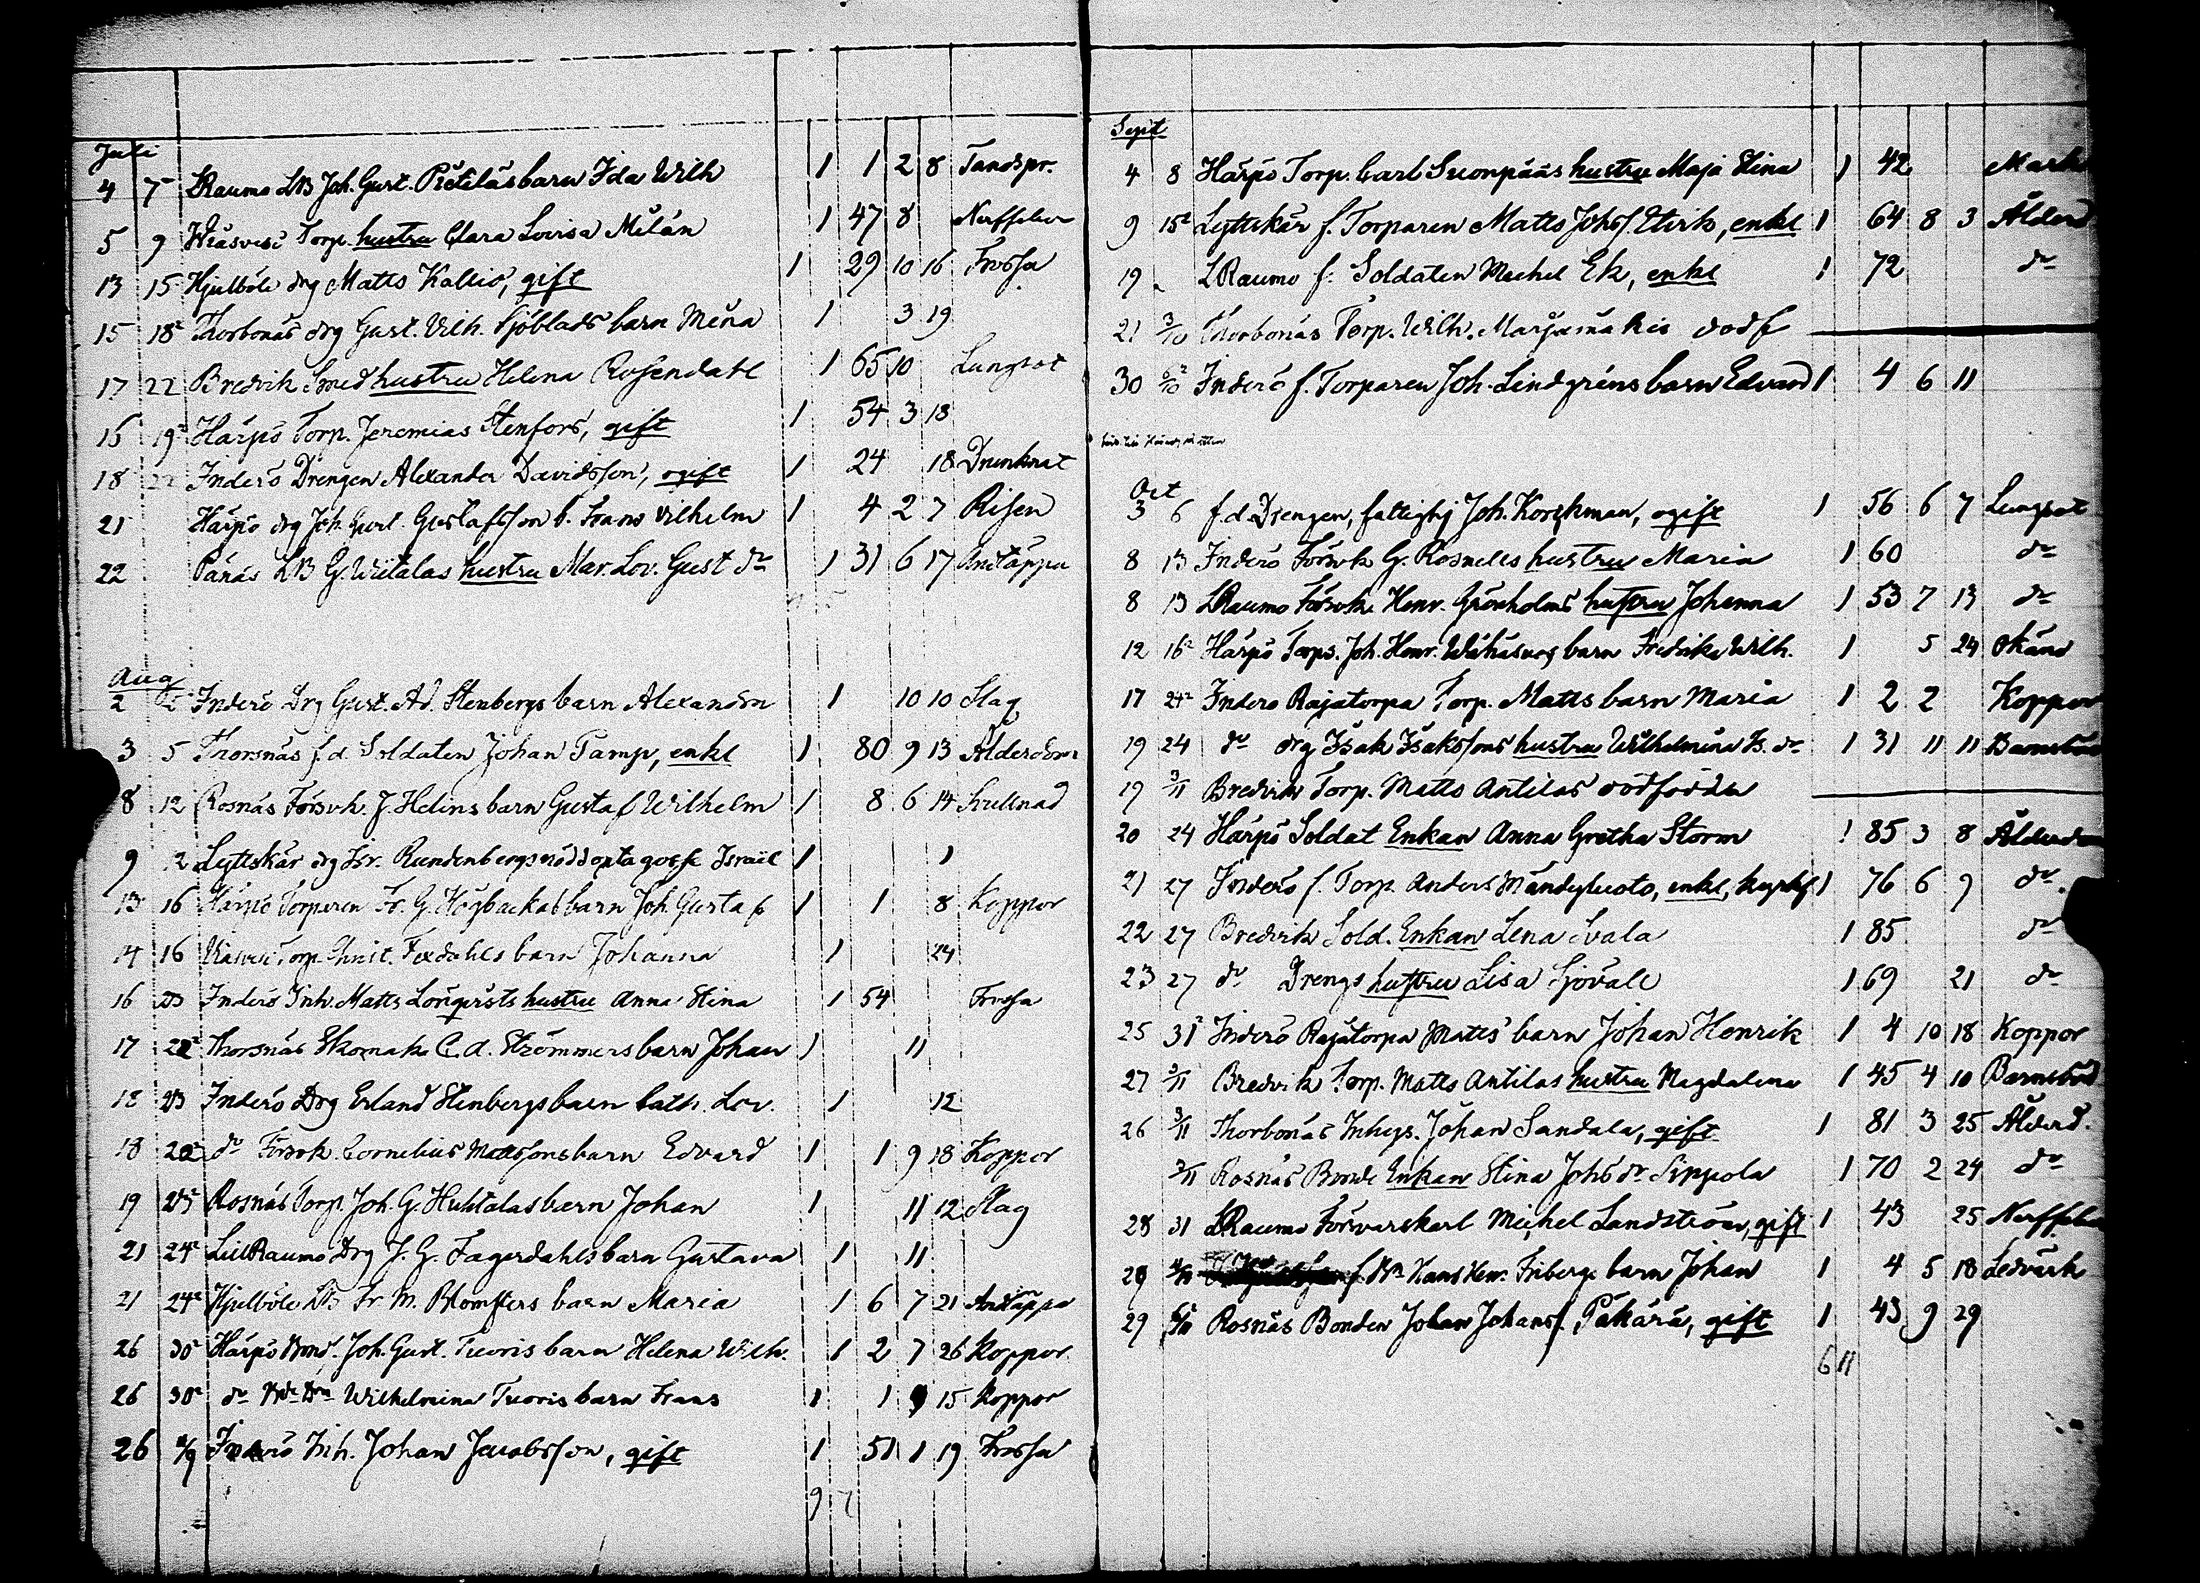 Juli
4 7 LRaumo LB Joh. Gust. Pietiläs barn Ida Wilh 1 1 2 8 Tandspr.
5 9 Wiasvesi Torp. hustru Clara Lovisa Milán 1 47 8 Nerffeber
13 15 Hjulböle drg Matts Kallio, gift 1 29 10 16 Frossa
15 18 Thorbonäs drg Gust. Vilh. Sjöblads barn Mina 1 3 19
17 22 Bredvik Smed hustru Helena Rosendahl 1 65 10 Lungsot
16 19 Harpö Torp. Jeremias Stenfors, gift 1 54 3 18
18 22 Inderö Drengen Alexander Davidsson, ogift 1 24 18 Drunknat
21 Harpö drg Joh. Gust. Gustafsson b. Frans Vilhelm 1 4 2 7 Risen
22 Pänäs LB G. Wiitalas hustru Mar. Lov. Gust dr 1 31 6 17 Andtäppa
Aug
2 Inderö Drg Gust. Ad. Stenbergs barn Alexandra 1 10 10 Slag
3 5 Thorsnäs f.d. Soldaten Johan Tamp, enkl 1 80 9 13
8 12 Rosnäs Försvk. J. Helins barn Gustaf Wilhelm 1 8 6 14
9 12 Lyttskär drg Isr. Rundenbergs nöddöpta gosse Israel 1 1
13 16 Harpö Torparen Fr. G. Högbackas barn Joh. Gustaf 1 1 8 Koppor
14 16 Viasvesi Torp. Christ. Fexdahls barn Johanna 1 24
16 23 Inderö Inh. Matts Lönqvists hustru Anna Stina 1 54 Frossa
17 22 Thorsnäs Skomak. C. A. Strömmers barn Johan 1 11
18 23 Inderö Drg Erland Stenbergs barn Cath. Lov. 1 12
18 22 do Försvk. Cornelius Matssons barn Edvard 1 1 9 18 Koppor
19 23 Rosnäs Torp. Joh. G. Huhtalas barn Johan 1 11 12 Slag
21 24 LillRaumo Drg J. G. Fagerdahls barn Gustava 1 11
21 24 Hjulböle LB Fr M. Blomsters barn Maria 1 6 7 21 Andtäppa
26 30 Harpö Bond. Joh. Gust. Tuoris barn Helena Wilh. 1 2 7 26 Koppor
26 30 do Wilhelmina Tuoris barn Frans 1 1 9 15 Koppor
26 Inderö Inh. Johan Jacobsson, gift 1 51 1 19 Frossa
9 7
Sept
4 8 Harpö Torp. Carl Suonpääs hustru Maja Stina 1 42
9 15 Lyttskär f. Torparen Matts Johsf. Stirk, enkl 1 64 8 3 Ålderd
19 LRaumo f. Soldaten Michel Ek, enkl 1 72 do
21 3/10 Thorbonäs Torp. Wilh. Marjamäkis dödf
30 Inderö f. Torparen Joh. Lindgrens barn Edvard 1 4 6 11
Oct
3 6 f.d. Drengen, fattighj Joh. Korshman, ogift 1 56 6 7 Lungsot
8 13 Inderö Försvk G. Rosnells hustru Maria 1 60 do
8 13 LRaumo Försvk. Henr. Grönholms hustru Johanna 1 53 7 13 do
12 16 Harpö Torps. Joh. Henr. barn Fredrika Wilh. 1 5 24 okänd
17 24 Inderö Rajatorpa Torp. Matts barn Maria 1 2 2 Koppor
19 24 do drg Isak Isakssons hustru Wilhelmina Is. dr 1 31 11 11 Barnsbörd
19 3/11 Bredvik Torp. Matts Antilas dödfödda
20 24 Harpö Soldat Enkan Anna Gretha Storm 1 85 3 8
21 27 Inderö f. Torp. Anders enkl, 1 76 6 9 do
22 27 Bredvik Sold. Enkan Lena Svala 1 85 do
23 27 do Drengs hustru Lisa Sjövall 1 69 21 do
25 31 Inderö Rajatorpa Matts barn Johan Henrik 1 4 10 18 Koppor
27 3/11 Bredvik Torp. Matts Antilas hustru Magdalena 1 45 4 10 Barnsbörd
26 3/11 Thorbonäs Inhys. Johan Sandala, gift 1 81 3 25 Ålderd.
3/11 Rosnäs Bonde Enkan Stina Johs dr Sippola 1 70 2 24 do
28 31 LRaumo Försvarskarl Michel Landström, gift 1 43 25
29 Hans Henr. Fribergs barn Johan 1 4 5 18 Ledvärk
29 Rosnäs Bonden Johan Johans f. Päkärä, gift 1 43 9 29
6 11